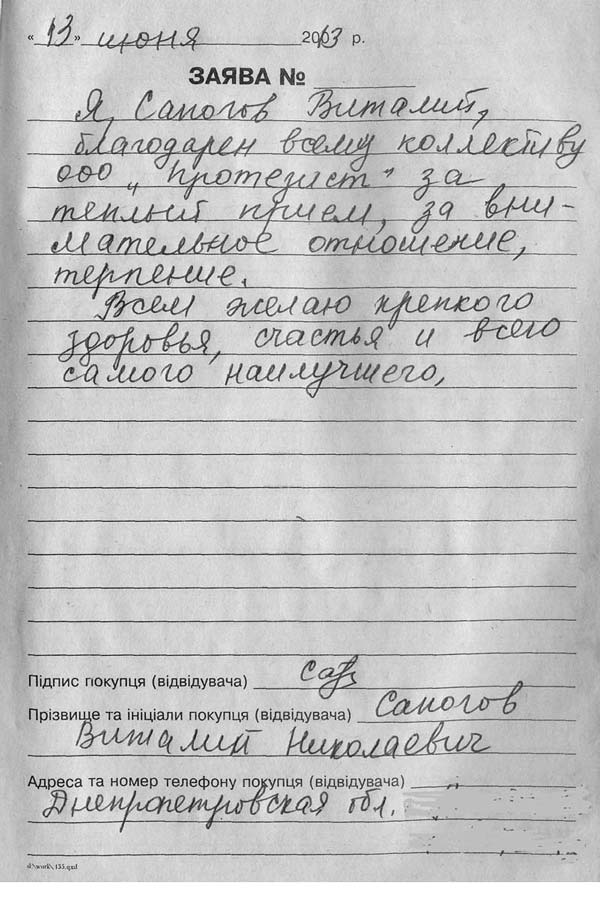 «13» июня 2013 р.
ЗАЯВА №
Я, Сапогов Виталий,
благодарен всему коллективу
ООО "Протезист" за
теплый прием, за вни-
мательное отношение,
терпение.
Всем желаю крепкого
здоровья, счастья и всего
самого наилучшего,
Підпис покупця (відвідувача) Сап
Прізвище та ініціали покупця (відвідувача) Сапогов
Виталий Николаевич
Адреса та номер телефону покупця (відвідувача)
Днепропетровская обл.